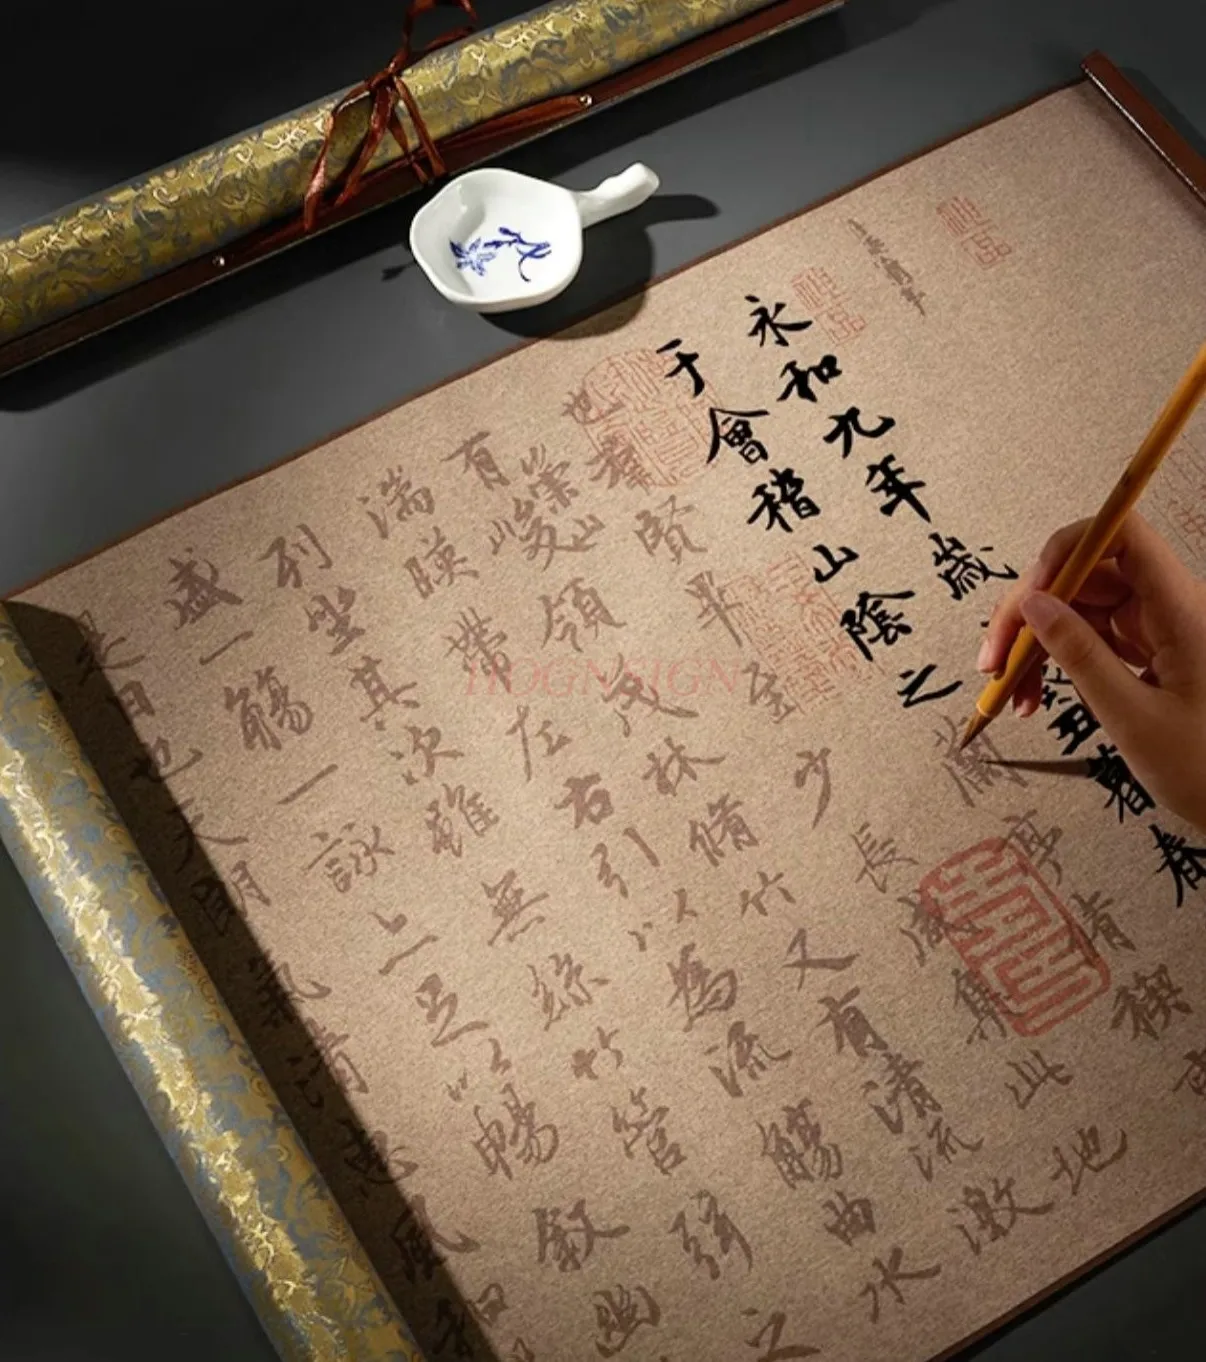 永和九年歲癸丑暮春
于會稽山陰之蘭亭脩禊事
也羣賢畢至少長咸集此地
有崇山峻領茂林脩竹又有清流激
湍暎帶左右引以為流觴曲水
列坐其次雖無絲竹管弦之
盛一觴一詠上足以暢敘幽
是日也天朗氣清惠風和
HOGNSIGN